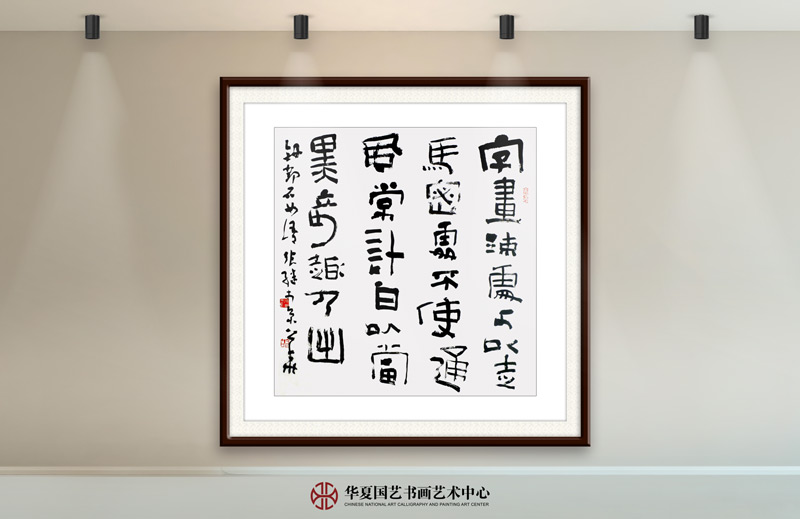 字畫疎處可以走
馬密處不使透
風常計白以當
黑奇趣乃出
鄧石如語張繼
华夏国艺书画艺术中心
CHINESE NATIONAL ART CALLIGRAPHY AND PAINTING ART CENTER